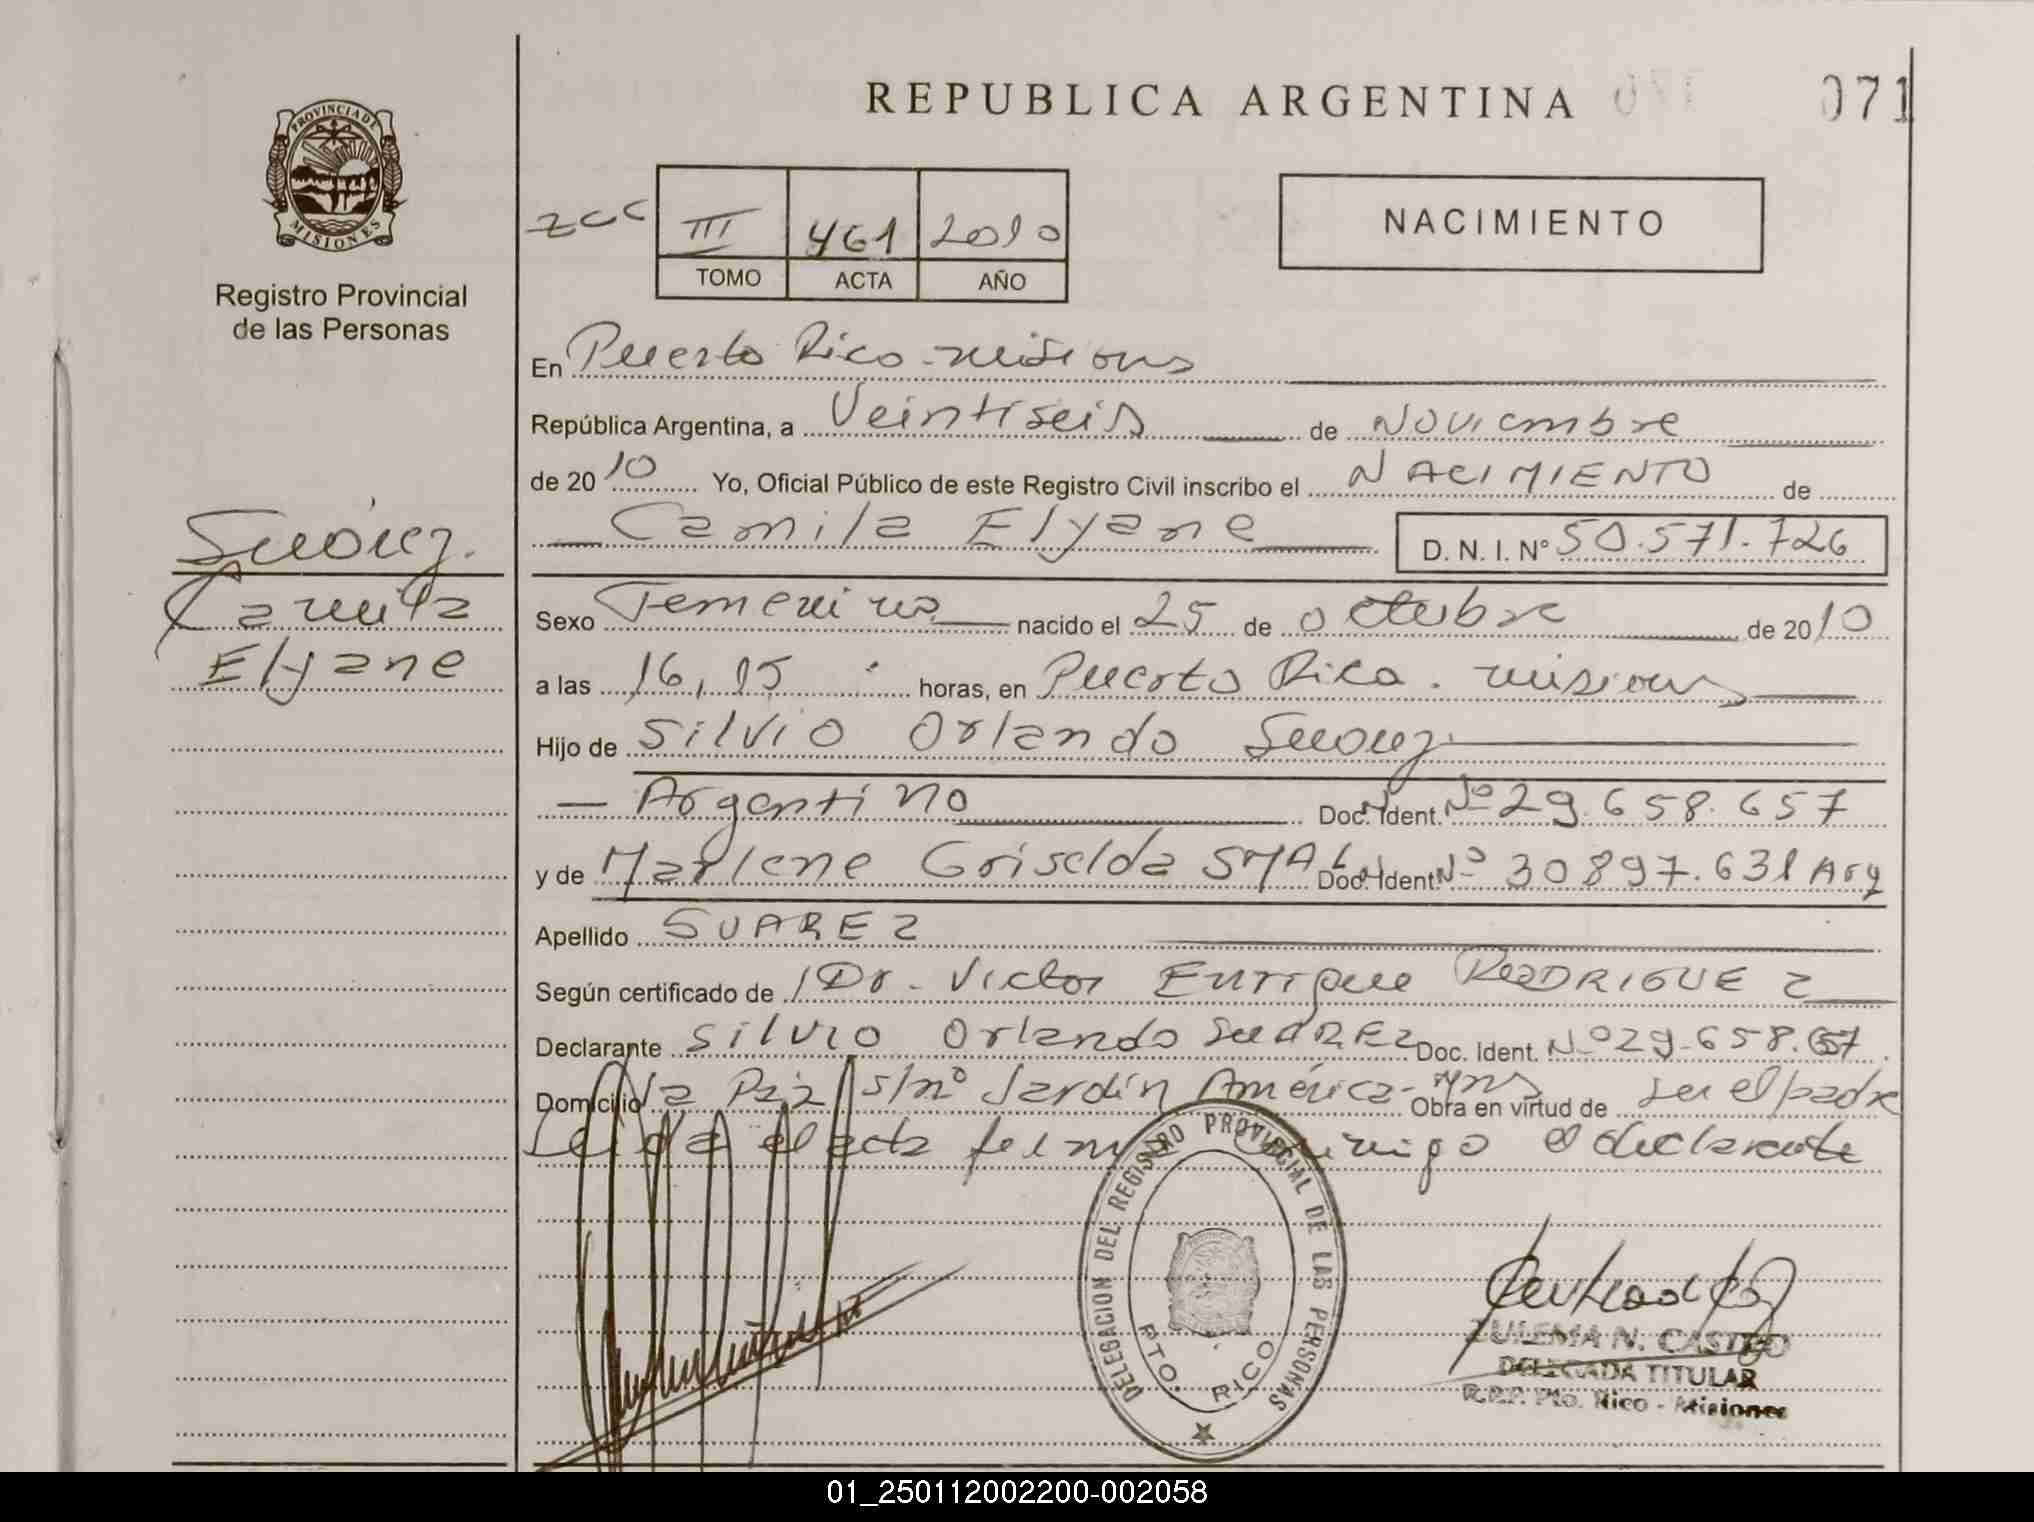 REPUBLICA ARGENTINA
071
PROVINCIA DE
MISIONES
Registro Provincial
de las Personas
zcc III 461 2010
TOMO ACTA AÑO
NACIMIENTO
En Puerto Rico - misiones
República Argentina, a Veintiseis de Noviembre
de 2010 Yo, Oficial Público de este Registro Civil inscribo el NACIMIENTO de
Camila Elyane D. N. I. Nº 50.571.726
Suárez.
Camila
Elyane
Sexo Femenino nacido el 25 de octubre de 2010
a las 16,15 horas, en Puerto Rico. misiones
Hijo de Silvio Orlando Suárez
Argentino Doc. Ident. Nº 29.658.657
y de Marlene Griselda SMAL Doc. Ident. Nº 30897.631 Arg
Apellido SUAREZ
Según certificado de Dr. Victor Enrique RODRIGUEZ
Declarante Silvio Orlando SUAREZ Doc. Ident. Nº 29.658.657
Domicilio La Paz s/nº Jardín América - Mns Obra en virtud de ser el padre
Leida el acta firma conmigo el declarante
DELEGACION DEL REGISTRO PROVINCIAL DE LAS PERSONAS
PTO. RICO
ZULEMA N. CASTRO
DELEGADA TITULAR
R.P.P. Pto. Rico - Misiones
01_250112002200-002058